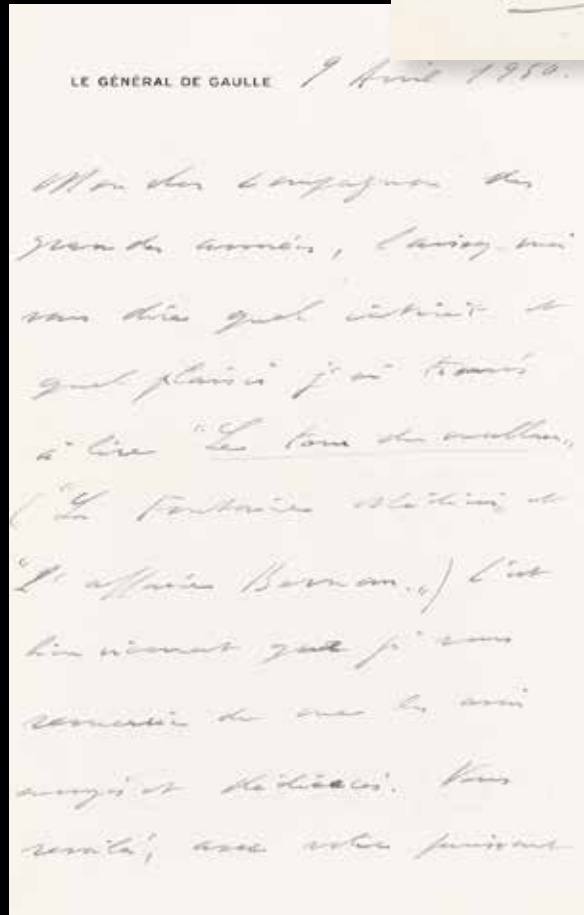 LE GÉNÉRAL DE GAULLE 9 Avril 1950.
Mon cher compagnon des
grandes années, laissez-moi
vous dire quel intérêt et
quel plaisir j'ai trouvés
à lire "Le tour du malheur„
("La Fontaine Médicis et
"L'affaire Bernan.„) C'est
bien vivement que je vous
remercie de me les avoir
envoyés et dédicacés. Vous
revoilà, avec votre puissant